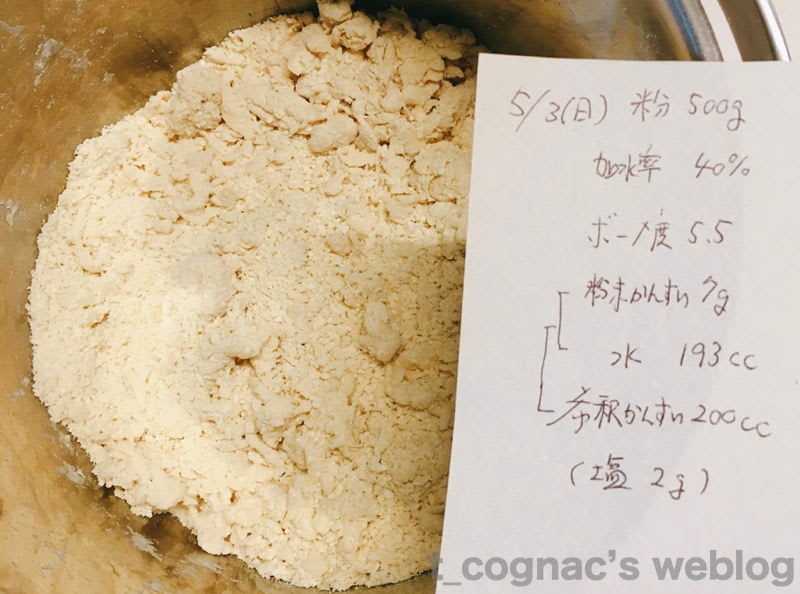 5/3(日) 粉 500g
加水率 40%
ボーメ度 5.5
粉末かんすい 7g
水 193cc
希釈かんすい 200cc
(塩 2g)
t_cognac's weblog